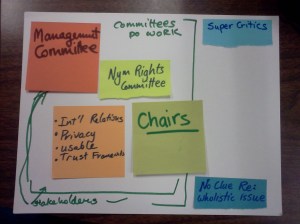 Management
Committee
Committees
DO WORK
Super Critics
Nym Rights
Committee
• Int'l Relations
• Privacy
• usable
• Trust Framewks
Chairs
Stakeholders
No Clue Re:
wholistic issue